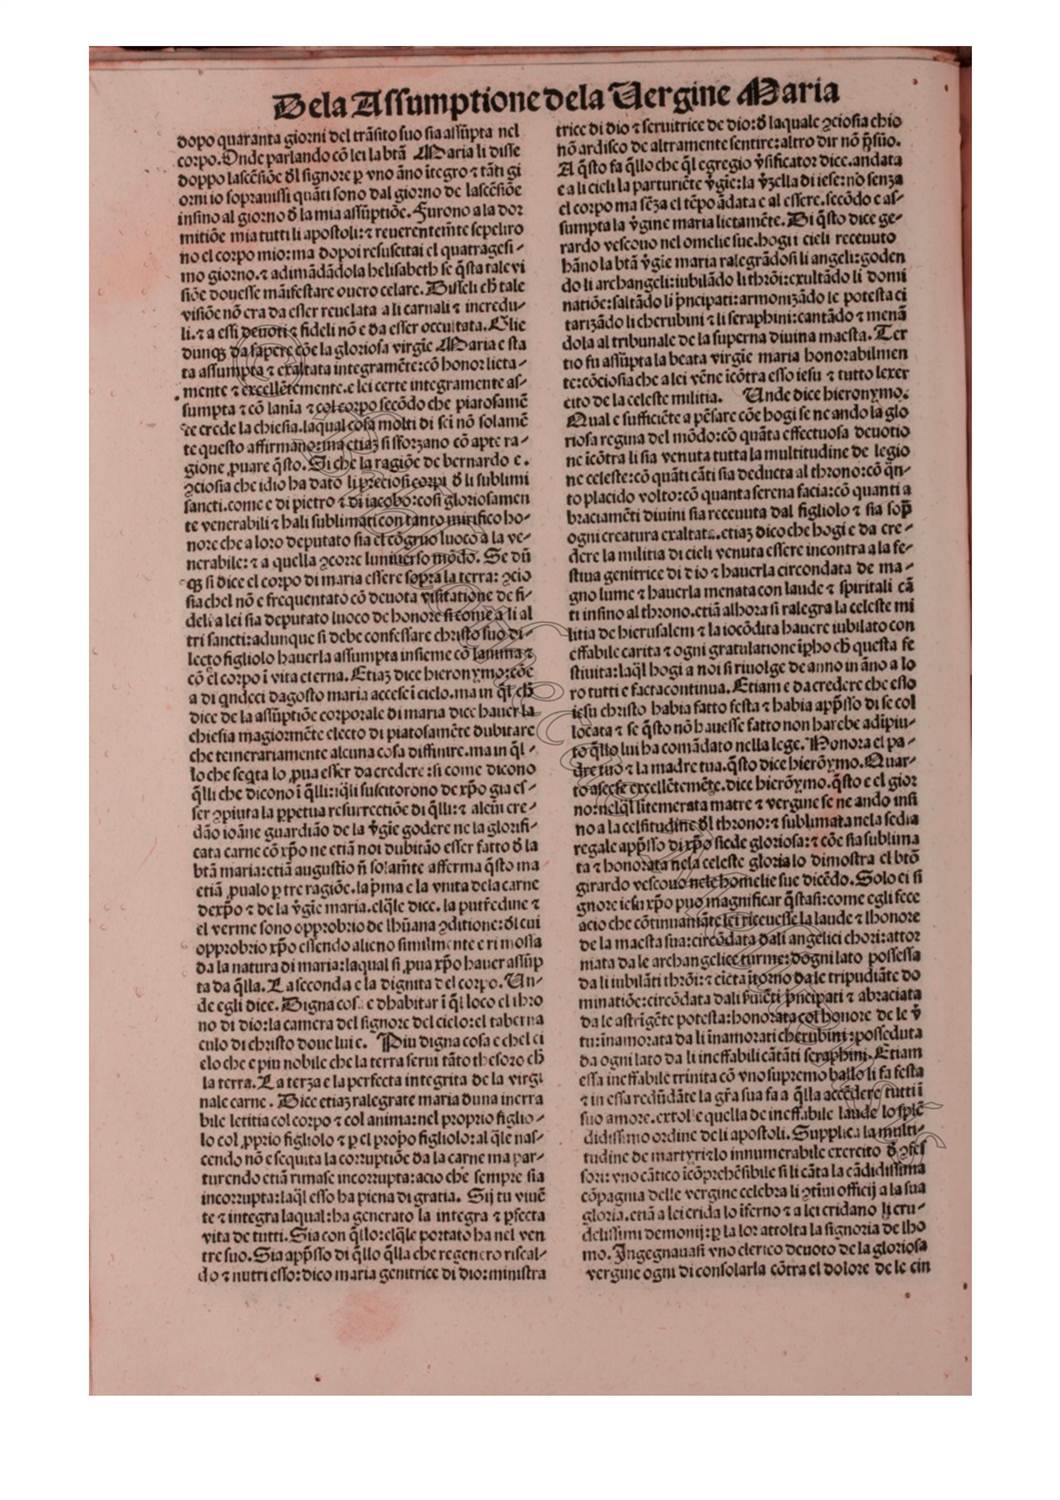 Dela Assumptione dela Vergine Maria
dopo quaranta giorni del trãsito suo sia assũpta nel
corpo. Onde parlando cõ lei la btã Maria li disse
doppo lascẽsiõe ꝺl signore ꝑ vno ãno ĩtegro ⁊ tãti gi
orni io sopravissi quãti sono dal giorno de lascẽsiõe
insino al giorno ꝺ la mia assũptiõe. Furono a la dor
mitiõe mia tutti li apostoli: ⁊ reuerentemẽte sepeliro
no el corpo mio: ma dopoi resuscitai el quatragesi-
mo giorno. ⁊ adimãdãdola helisabeth se q̃sta tale vi
siõe douesse mãifestare ouero celare. Disseli ch̃ tale
visiõe nõ era da esser reuelata a li carnali ⁊ incredu-
li. ⁊ a essi deuoti ⁊ fideli nõ e da esser occultata. Glie
dunq; da sapere cõe la gloriosa virgĩe Maria e sta
ta assumpta ⁊ exaltata integramẽte: cõ honor: lieta-
mente ⁊ excellẽtemente. e lei certe integramente as-
sumpta ⁊ cõ lanĩa ⁊ col corpo secõdo che piatosamẽ
te crede la chiesia. laqual cosa molti di sci nõ solamẽ
te questo affirmano: ma etiaz si sforzano cõ apte ra-
gione ꝓuare q̃sto. Si che la ragiõe de bernardo e.
ꝯciosia che idio ha dato li preciosi corpi ꝺ li sublimi
sancti. come e di pietro ⁊ di iacobo: cosi gloriosamen
te venerabili ⁊ hali sublimati con tanto mirifico ho-
nore che a loro deputato sia el cõgruo luoco a la ve-
nerabile: ⁊ a quella ꝯcorre luniuerso mõdo. Se dũ
q; si dice el corpo di maria essere sopra la terra: ꝯcio
sia chel nõ e frequentato cõ deuota visitatione de fi-
deli a lei sia deputato luoco de honore si come a li al
tri sancti: adunque si debe confessare christo suo di-
lecto figliolo hauerla assumpta insieme cõ lanima ⁊
cõ el corpo ĩ vita eterna. Etiaz dice hieronymo: cõe
a di qndeci dagosto maria accese ĩ cielo. ma in q̃l ch̃
dice de la assũptiõe corporale di maria dice hauer la
chiesia magiormẽte electo di piatosamẽte dubitare
che temerariamente alcuna cosa diffinire. ma in q̃l-
lo che seq̃ta lo ꝓua esser da credere: si come dicono
q̃lli che dicono ĩ q̃lli: iq̃li suscitorono de xp̃o gia es-
ser ꝯpiuta la ꝑpetua resurrectiõe di q̃lli: ⁊ alcũi cre-
dão ioãne guardiãno de la v̄gie godere ne la glorifi-
cata carne cõ xp̃o ne etiã noi dubitão esser fatto ꝺ la
btã maria: etiã augustĩo nō solamẽte afferma q̃sto ma
etiã ꝓualo ꝑ tre ragiõe. la p̃ma e la vnita dela carne
dexp̃o ⁊ de la v̄gie maria. elq̃le dice. la putredine ⁊
el verme sono opprobrio de lhũana ꝯditione: ꝺl cui
opprobrio xp̃o essendo alieno similmente e rimossa
da la natura di maria: laqual si ꝓua xp̃o hauer assũp
ta da q̃lla. La seconda e la dignita del corpo. Un-
de egli dice. Digna cosa e dhabitar ĩ q̃l loco el thro
no di dio: la camera del signore del cielo: el taberna
culo di christo doue lui e. Piu digna cosa e chel ci
elo che e piu nobile che la terra serui tãto thesoro ch̃
la terra. La terza e la perfecta integrita de la virgi
nale carne. Dice etiaz ralegrate maria duna inerra
bile letitia col corpo ⁊ col anima: nel proprio figlio-
lo col ꝓprio figliolo ⁊ ꝑ el propo figliolo: al q̃le nas-
cendo nõ e sequita la corruptiõe da la carne ma par-
turendo etiã rimase incorrupta: acio che sempre sia
incorrupta: laq̃l esso ha piena di gratia. Sij tu viuẽ
te ⁊ integra laqual: ha generato la integra ⁊ ꝑfecta
vita de tutti. Sia con q̃llo: elq̃le portato ha nel ven
tre suo. Sia app̃sso di q̃llo q̃lla che regenero riscal-
do ⁊ nutri esso: dico maria genitrice di dio: ministra
trice di dio ⁊ seruitrice de dio: ꝺ laquale ꝯciosia chio
nõ ardisco de altramente sentire: altro dir nõ p̃sũo.
A q̃sto fa q̃llo che q̃l egregio v̄sificator dice. andata
e a li cieli la parturiẽte v̄gie: la v̄zella di iese: no senza
el corpo ma sẽza el tẽpo ãdata e al essere. secõdo e as-
sumpta la v̄gine maria lietamẽte. Di q̃sto dice ge-
rardo vescouo nel omelie sue. hogi i cieli receuuto
hãno la btã v̄gie maria ralegrãdosi li angeli: goden
do li archangeli: iubilãdo li thrõi: exultãdo li domi
natiõe: saltãdo li p̃ncipati: armonizãdo le potesta ci
tarizãdo li cherubini ⁊ li seraphini: cantãdo ⁊ menã
dola al tribunale de la superna diuina maesta. Ter
tio fu assũpta la beata virgie maria honorabilmen
te: cõciosia che a lei vẽne ĩcõtra esso iesu ⁊ tutto lexer
cito de la celeste militia. Unde dice hieronymo.
Qual e sufficiẽte a pẽsare cõe hogi se ne ando la glo
riosa regina del mõdo: cõ quãta effectuosa deuotio
ne ĩcõtra li sia venuta tutta la multitudine de legio
ne celeste: cõ quãti cãti sia deducta al throno: cõ q̃n-
to placido volto: cõ quanta serena facia: cõ quanti a
braciamẽti diuini sia receuuta dal figliolo ⁊ sia sop̃
ogni creatura exaltata. etiaz dico che hogi e da cre-
dere la militia di cieli venuta essere incontra a la fe-
stiua genitrice di dio ⁊ hauerla circondata de ma-
gno lume ⁊ hauerla menata con laude ⁊ spiritali cã
ti insino al throno. etiã alhora si ralegra la celeste mi
litia de hierusalem ⁊ la iocõdita hauere iubilato con
effabile carita ⁊ ogni gratulatione ĩpho ch̃ questa fe
stiuita: laq̃l hogi a noi si riuolge de anno in ãno a lo
ro tutti e facta continua. Etiam e da credere che esso
iesu christo habia fatto festa ⁊ habia app̃sso di se col
locata ⁊ se q̃sto nõ hauesse fatto non harebe adipiu-
to q̃llo lui ha comãdato nella lege. Honora el pa-
dre tuo ⁊ la madre tua. q̃sto dice hierõymo. Quar-
to ascese excellẽtemẽte. dice hierõymo. q̃sto e el gior
no: nelq̃l litemerata matre ⁊ vergine se ne ando insi
no a la celsitudine ꝺl throno: ⁊ sublimata nela sedia
regale app̃sso di xp̃o siede gloriosa: ⁊ cõe sia sublima
ta ⁊ honorata nela celeste gloria lo dimostra el btõ
girardo vescouo nele homelie sue dicẽdo. Solo ci si
gnore iesu xp̃o puo magnificar q̃stasi: come egli fece
acio che cõtinuamẽte lei riceuesse la laude ⁊ lhonore
de la maesta sua: circõdata dali angelici chori: attor
niata da le archangelice turme: dogni lato possessa
da li iubilãti thrõi: ⁊ cicta ĩtorno da le tripudiãte do
minatiõe: circõdata dali p̃ncipati ⁊ abraciata
da le astrĩgẽte potesta: honorata col honore de le v̄
tu: ĩnamorata da li ĩnamorati cherubini: posseduta
da ogni lato da li ineffabili cãtãti seraphini. Etiam
essa ineffabile trinita cõ vno supremo ballo li fa festa
⁊ in essa redũdãte la gr̃a sua fa a q̃lla accẽdere tutti ĩ
suo amore. extol e quella de ineffabile laude lo splẽ
didissimo ordine de li apostoli. Supplica la multi-
tudine de martyri: lo innumerabile exercito ꝺ ꝯfes
sori: vno cãtico ĩcõprehẽsibile si li cãta la cãdidissima
cõpagnia delle vergine celebra li ꝯtĩui officij a la sua
gloria. etiã a lei crida lo ĩferno ⁊ a lei cridano li cru-
delissimi demonij: ꝑ la lor attolta la signoria de lho
mo. Ingegnauasi vno clerico deuoto de la gloriosa
vergine ogni di consolarla cõtra el dolore de le cin